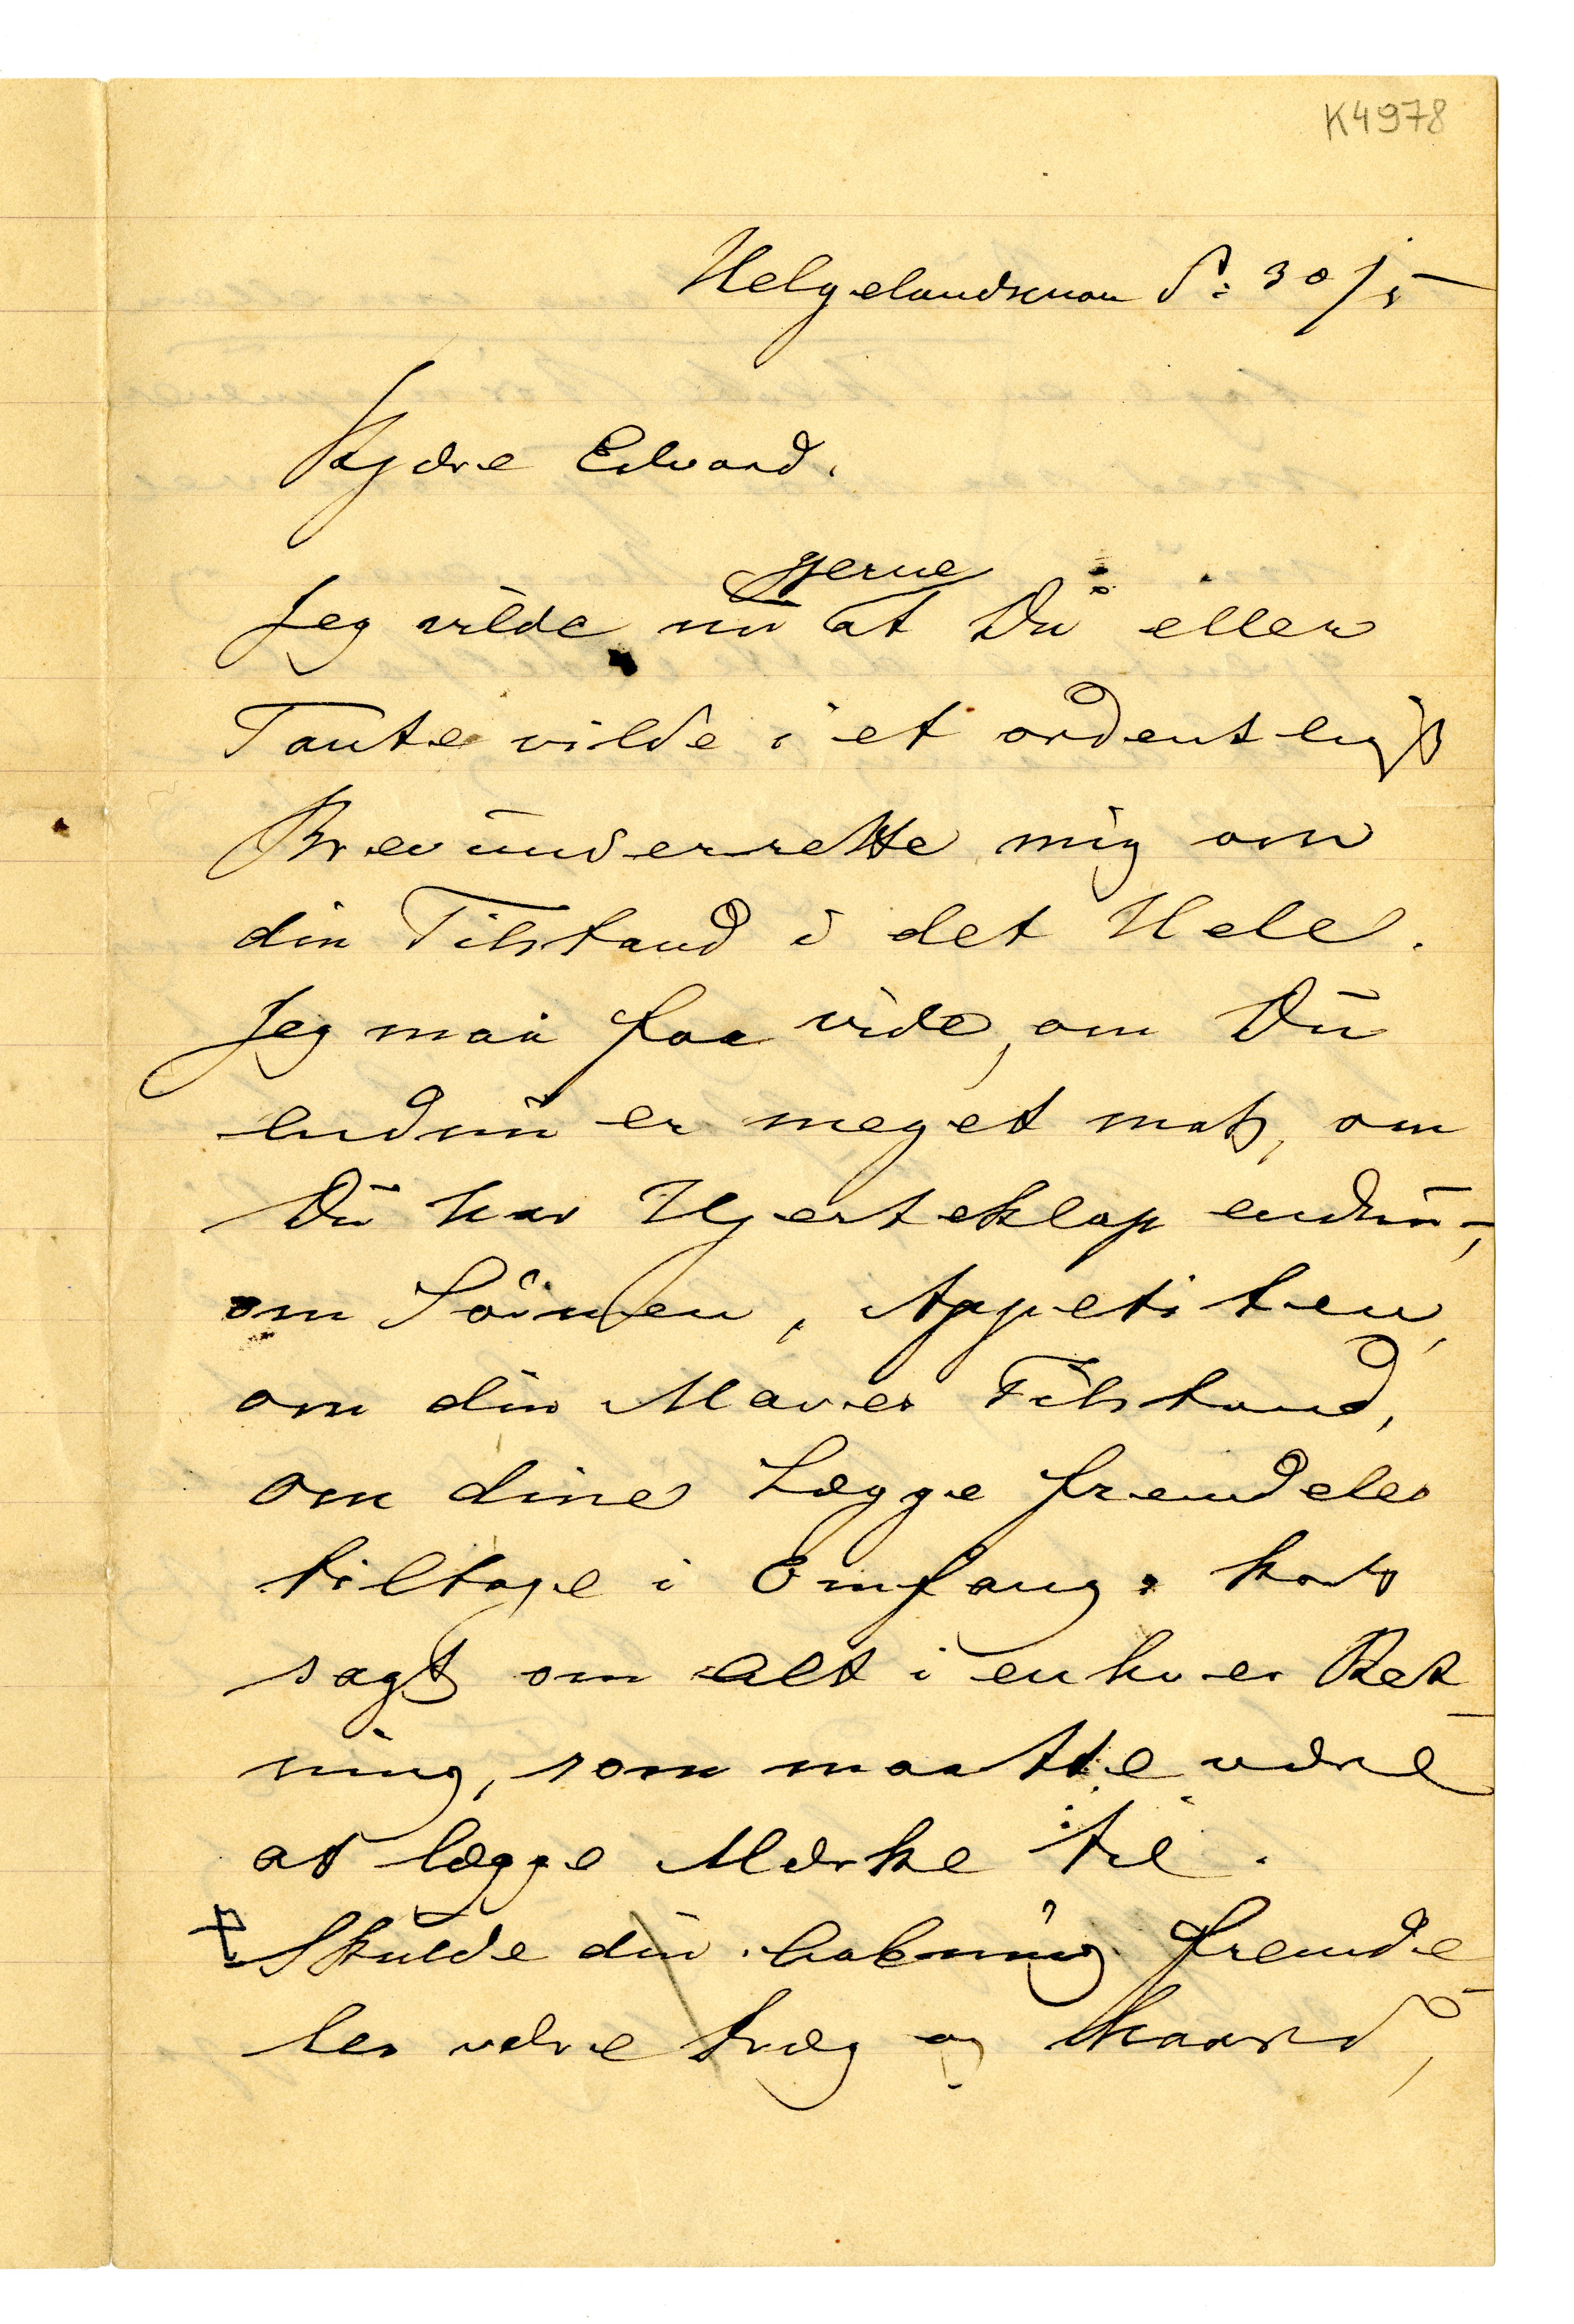 K4978
Helgelandsmoen d: 30/5
Kjære Edvard.
gjerne
Jeg vilde nu at Du eller
Tante vilde i et ordentligt
Brev underrette mig om
din Tilstand i det Hele.
Jeg maa faa vide, om Du
endnu er meget mat, om
Du har Hjerteklap endnu,
om Søvnen, Appetiten,
om din Maves Tilstand,
om dine Lægge fremdeles
tiltage i Omfang. kort
sagt om alt i enhver Ret-
ning, som maatte være
at lægge Mærke til.
Skulde din Aabning fremde-
les være træg og haard,